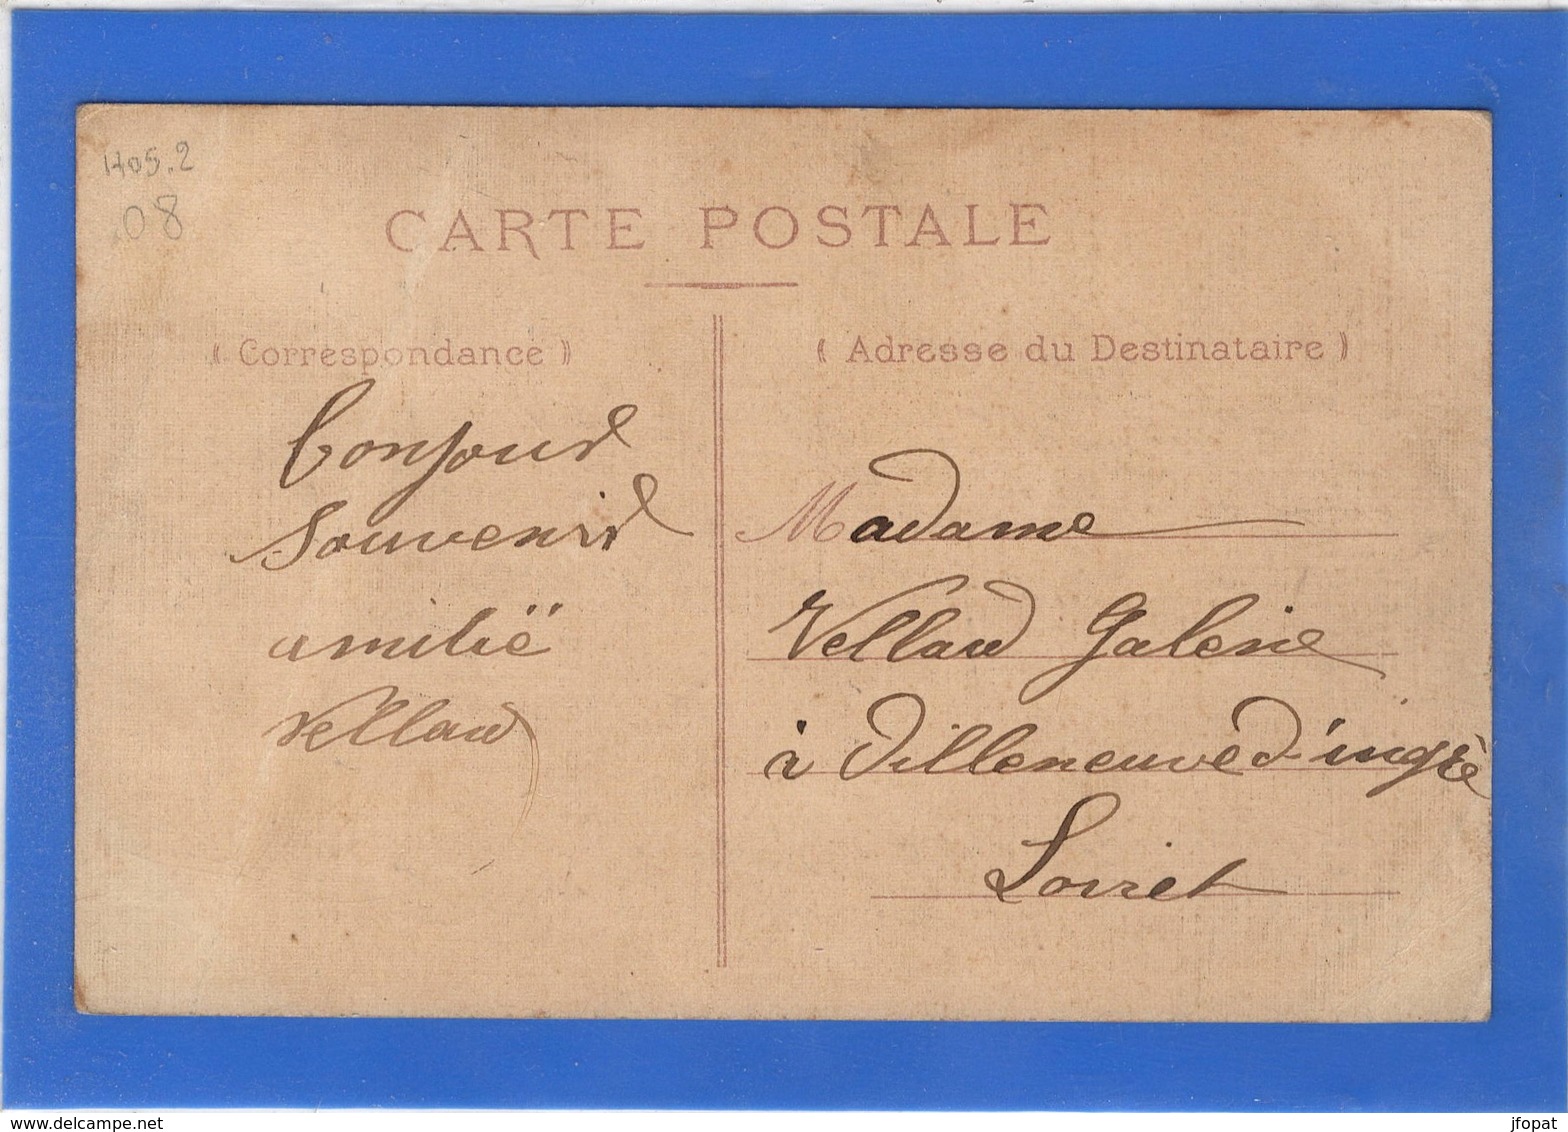 1405.2
08
CARTE POSTALE
( Correspondance )
( Adresse du Destinataire )
bonjour
Souvenir
amitié
Vellard
Madame
Vellard Galerie
à Villeneuve d'ingré
Loiret
delcampe.net
jfopat